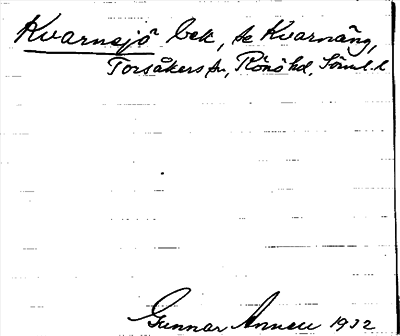 Kvarnsjö bek, se Kvarnäng,
Torsåkers sn, Rönö hd, Söml. l
Gunnar 1932